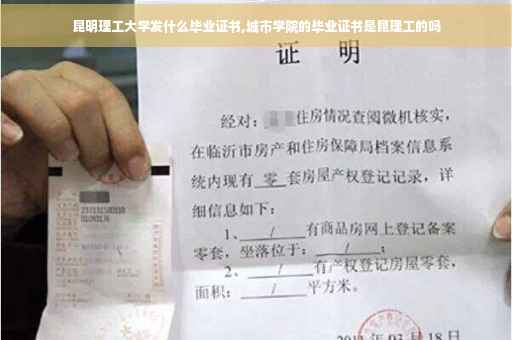 昆明理工大学发什么毕业证书,城市学院的毕业证书是昆理工的吗
证 明
经对：住房情况查阅微机核实，
在临沂市房产和住房保障局档案信息系
统内现有 零 套房屋产权登记记录，详
细信息如下：
1、 / 有商品房网上登记备案
零套，坐落位于： / ；
2、 / 有产权登记房屋零套，
面积： / 平方米。
18日